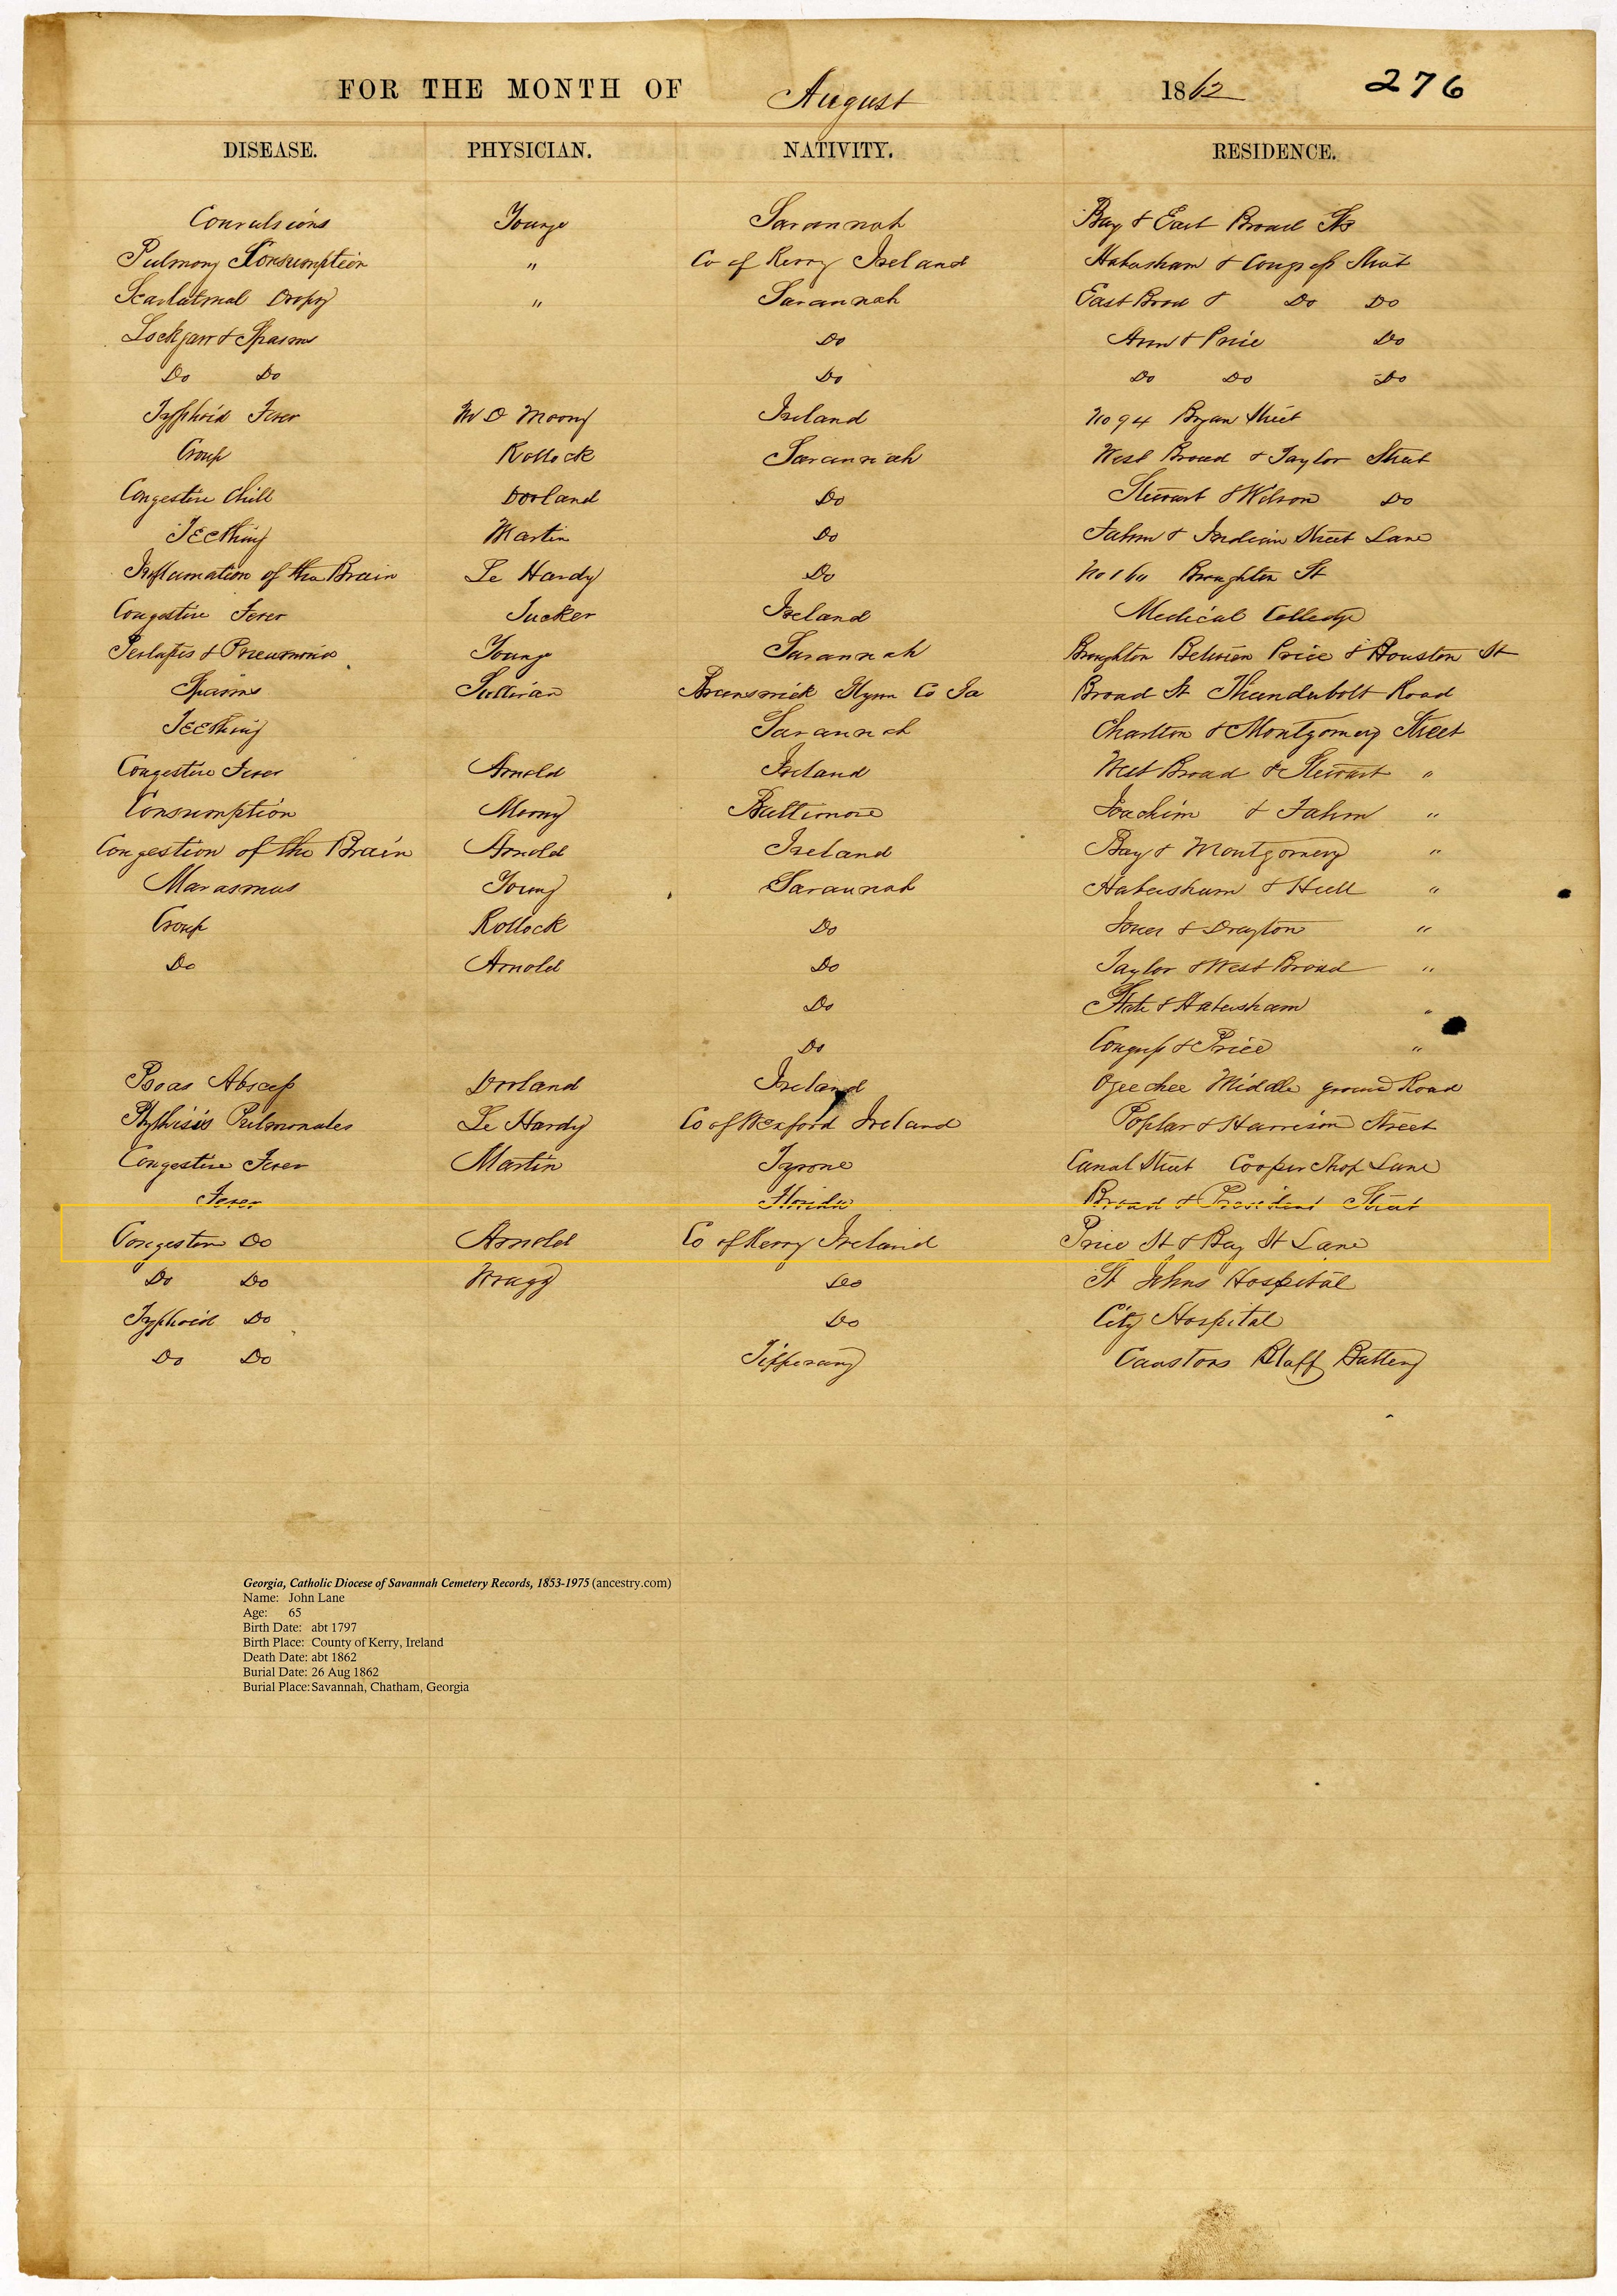 FOR THE MONTH OF August 1862 276
DISEASE. PHYSICIAN. NATIVITY. RESIDENCE.
Convulsions Younge Savannah Bay & East Broad Sts
Pulmony Consumption " Co of Kerry Ireland Habersham & Congress Street
Scarlatinal Dropsy " Savannah East Broad & Do Do
Lockjaw & Spasms Do Ann & Price Do
Do Do Do Do Do Do
Typhoid Fever Ireland No 94 Bryan Street
Croup Kollock Savannah West Broad & Taylor Street
Congestive Chill Dorland Do Stewart & Wilson Do
Teething Martin Do Fahm & Indian Street Lane
Inflamation of the Brain Le Hardy Do No 160 Broughton St
Congestive Fever Tucker Ireland Medical Colledge
& Pneumonia Younge Savannah Broughton Between Price & Houston St
Spasms Sullivan Brunswick Glynn Co Ga Broad St Thunderbolt Road
Teething Savannah Charlton & Montgomery Street
Congestive Fever Arnold Ireland West Broad & Stewart "
Consumption Baltimore Joachim & Fahm "
Congestion of the Brain Arnold Ireland Bay & Montgomery "
Marasmus Young Savannah Habersham & Hull "
Croup Kollock Do Jones & Drayton "
Do Arnold Do Taylor & West Broad "
Do State & Habersham "
Do Congress & Price "
Psoas Abscess Dorland Ireland Ogeechee Middle ground Road
Phthisis Pulmonales Le Hardy Co of Wexford Ireland Poplar & Harrison Street
Congestive Fever Martin Tyrone Canal Street Cooper Shop Lane
Fever Florida Broad & President Street
Congestive Do Arnold Co of Kerry Ireland Price St & Bay St Lane
Do Do Wragg Do St Johns Hospital
Typhoid Do Do City Hospital
Do Do Tipperary Caustons Bluff Battery
Georgia, Catholic Diocese of Savannah Cemetery Records, 1853-1975 (ancestry.com)
Name: John Lane
Age: 65
Birth Date: abt 1797
Birth Place: County of Kerry, Ireland
Death Date: abt 1862
Burial Date: 26 Aug 1862
Burial Place: Savannah, Chatham, Georgia